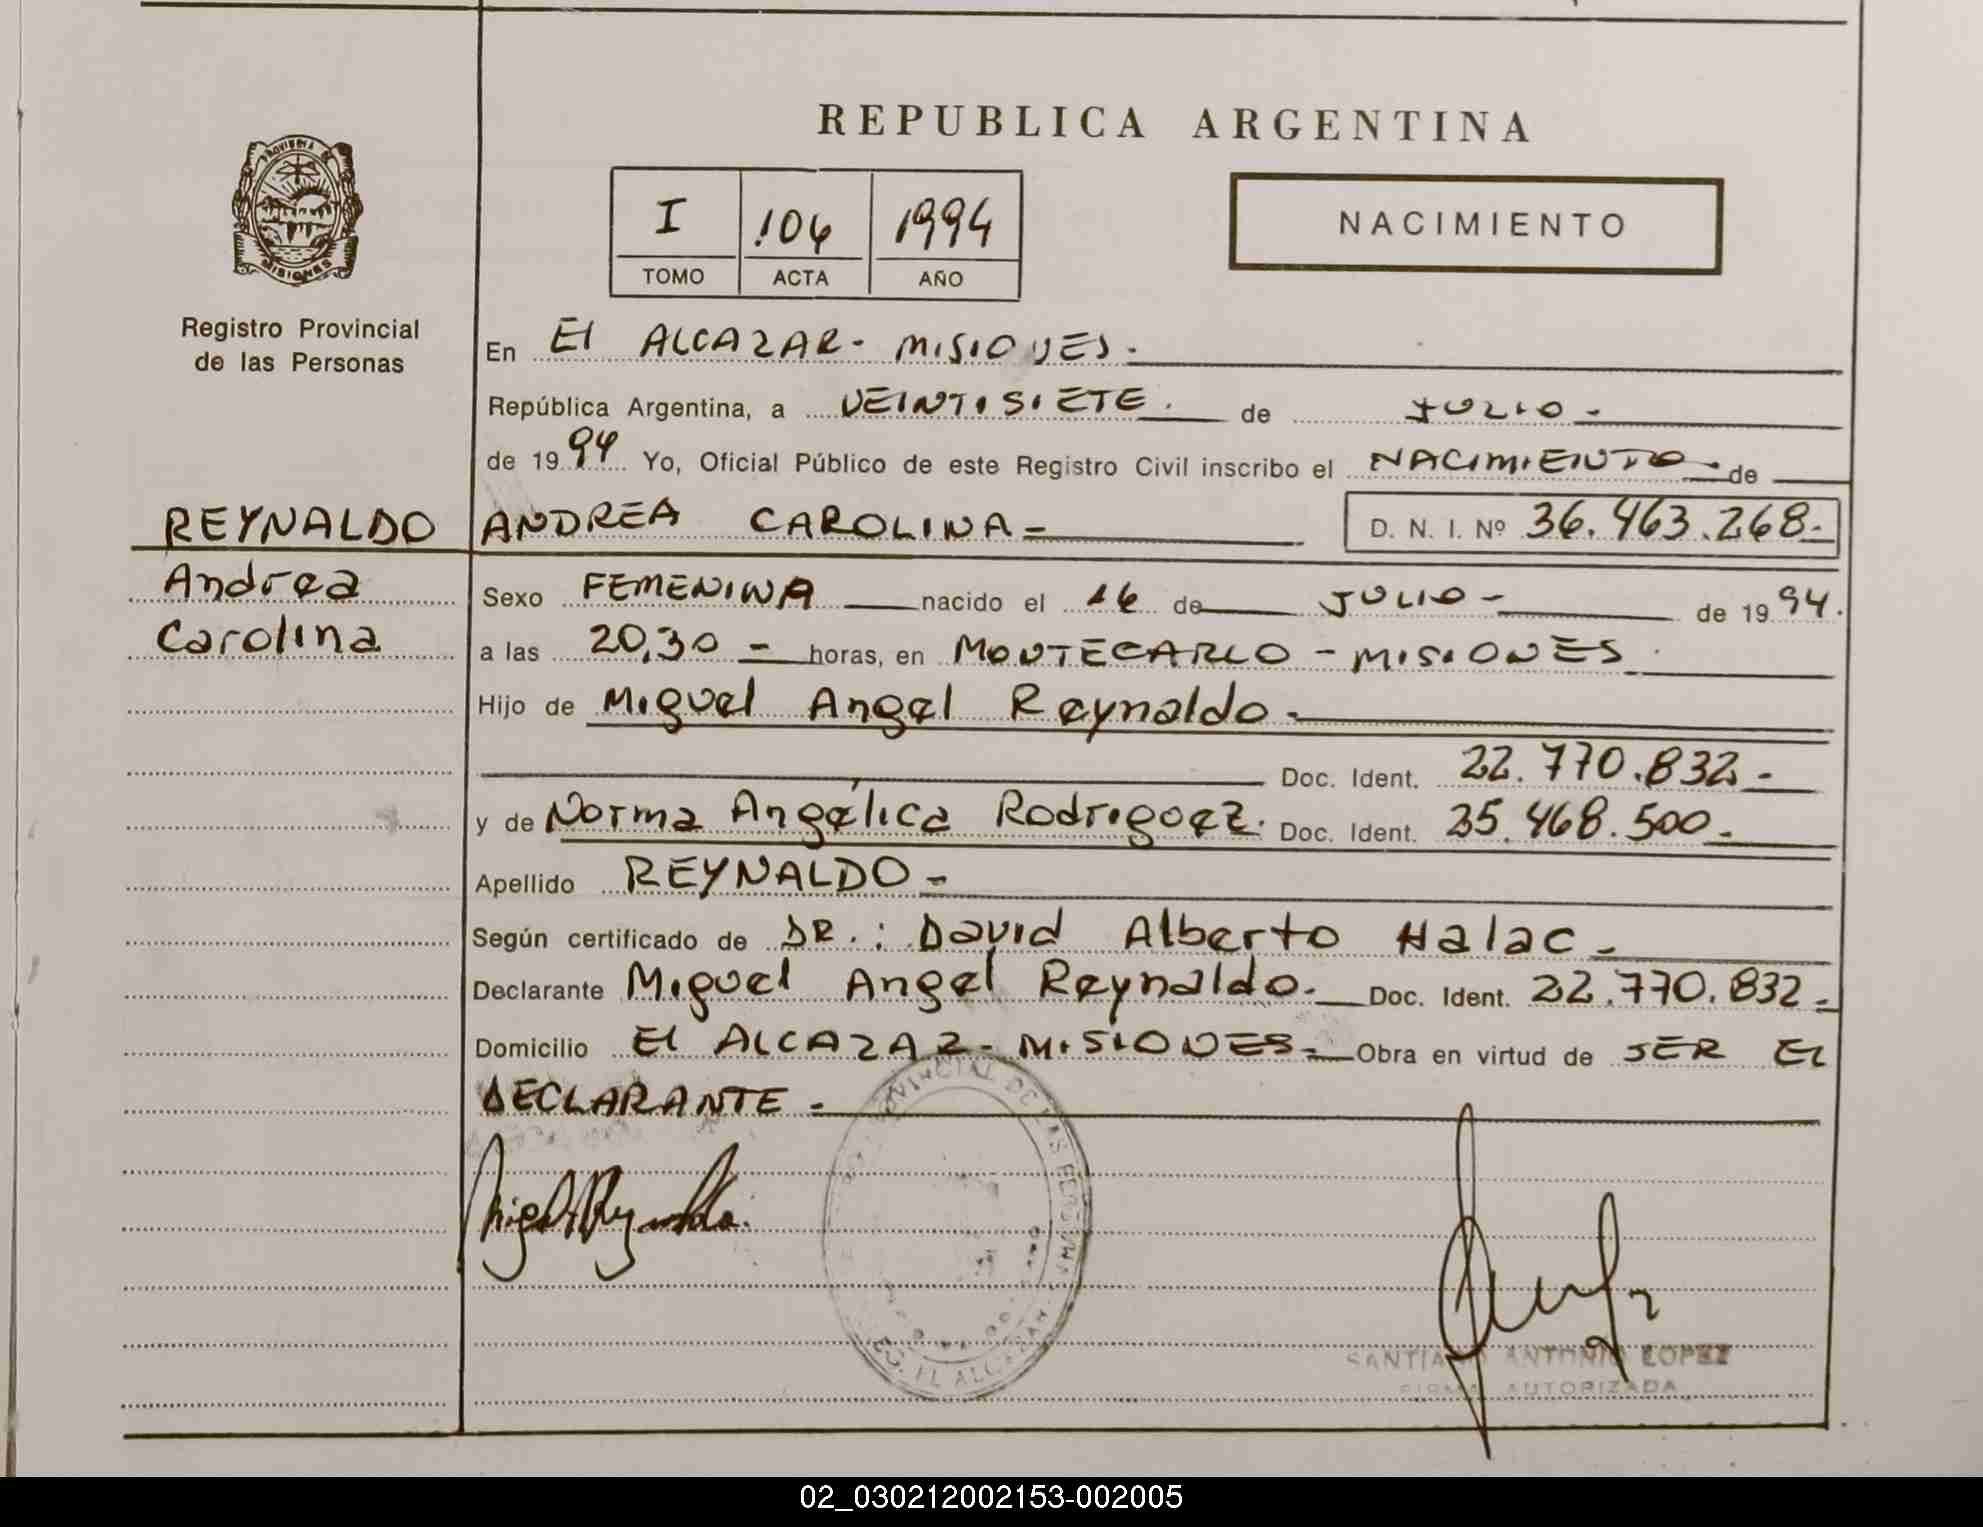 REPUBLICA ARGENTINA
PROVINCIA DE
MISIONES
Registro Provincial
de las Personas
I 104 1994
TOMO ACTA AÑO
NACIMIENTO
En El ALCAZAR - MISIONES.
República Argentina, a VEINTISIETE. de JULIO -
de 1994 Yo, Oficial Público de este Registro Civil inscribo el NACIMIENTO - de
REYNALDO ANDREA CAROLINA - D. N. I. Nº 36.463.268.-
Andrea
Carolina
Sexo FEMENINA nacido el 16 de JULIO - de 1994.
a las 20,30 - horas, en MONTECARLO - MISIONES.
Hijo de Miguel Angel Reynaldo -
Doc. Ident. 22.770.832 -
y de Norma Angélica Rodriguez. Doc. Ident. 25.468.500 -
Apellido REYNALDO -
Según certificado de DR.: David Alberto Halac -
Declarante Miguel Angel Reynaldo. - Doc. Ident. 22.770.832 -
Domicilio El ALCAZAR - MISIONES - Obra en virtud de SER EL
DECLARANTE -
PROVINCIAL DE LAS PERSONAS
EL ALCAZAR
SANTIAGO ANTONIO LOPEZ
FIRMA AUTORIZADA
02_030212002153-002005